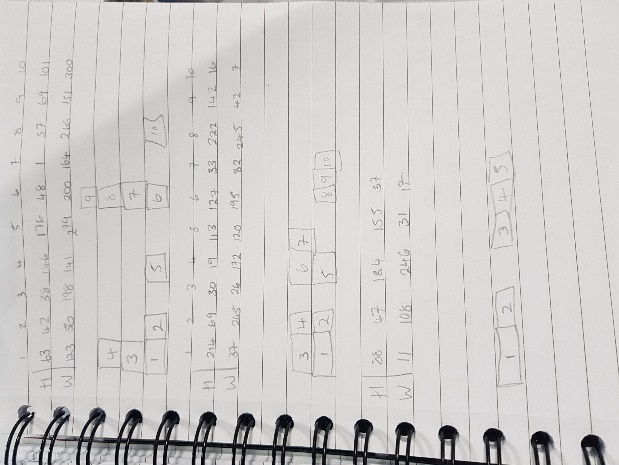 1 2 3 4 5 6 7 8 9 10
H 63 42 38 146 176 48 1 57 69 101
W 123 30 198 141 279 200 164 266 151 300
9
4 8
3 7
1 2 5 6 10
1 2 3 4 5 6 7 8 9 10
H 214 69 30 19 113 127 33 222 142 16
W 37 265 26 172 120 195 82 245 42 7
3 4 6 7
1 2 5 8 9 10
H 28 47 184 155 37
W 11 108 246 31 17
1 2 3 4 5